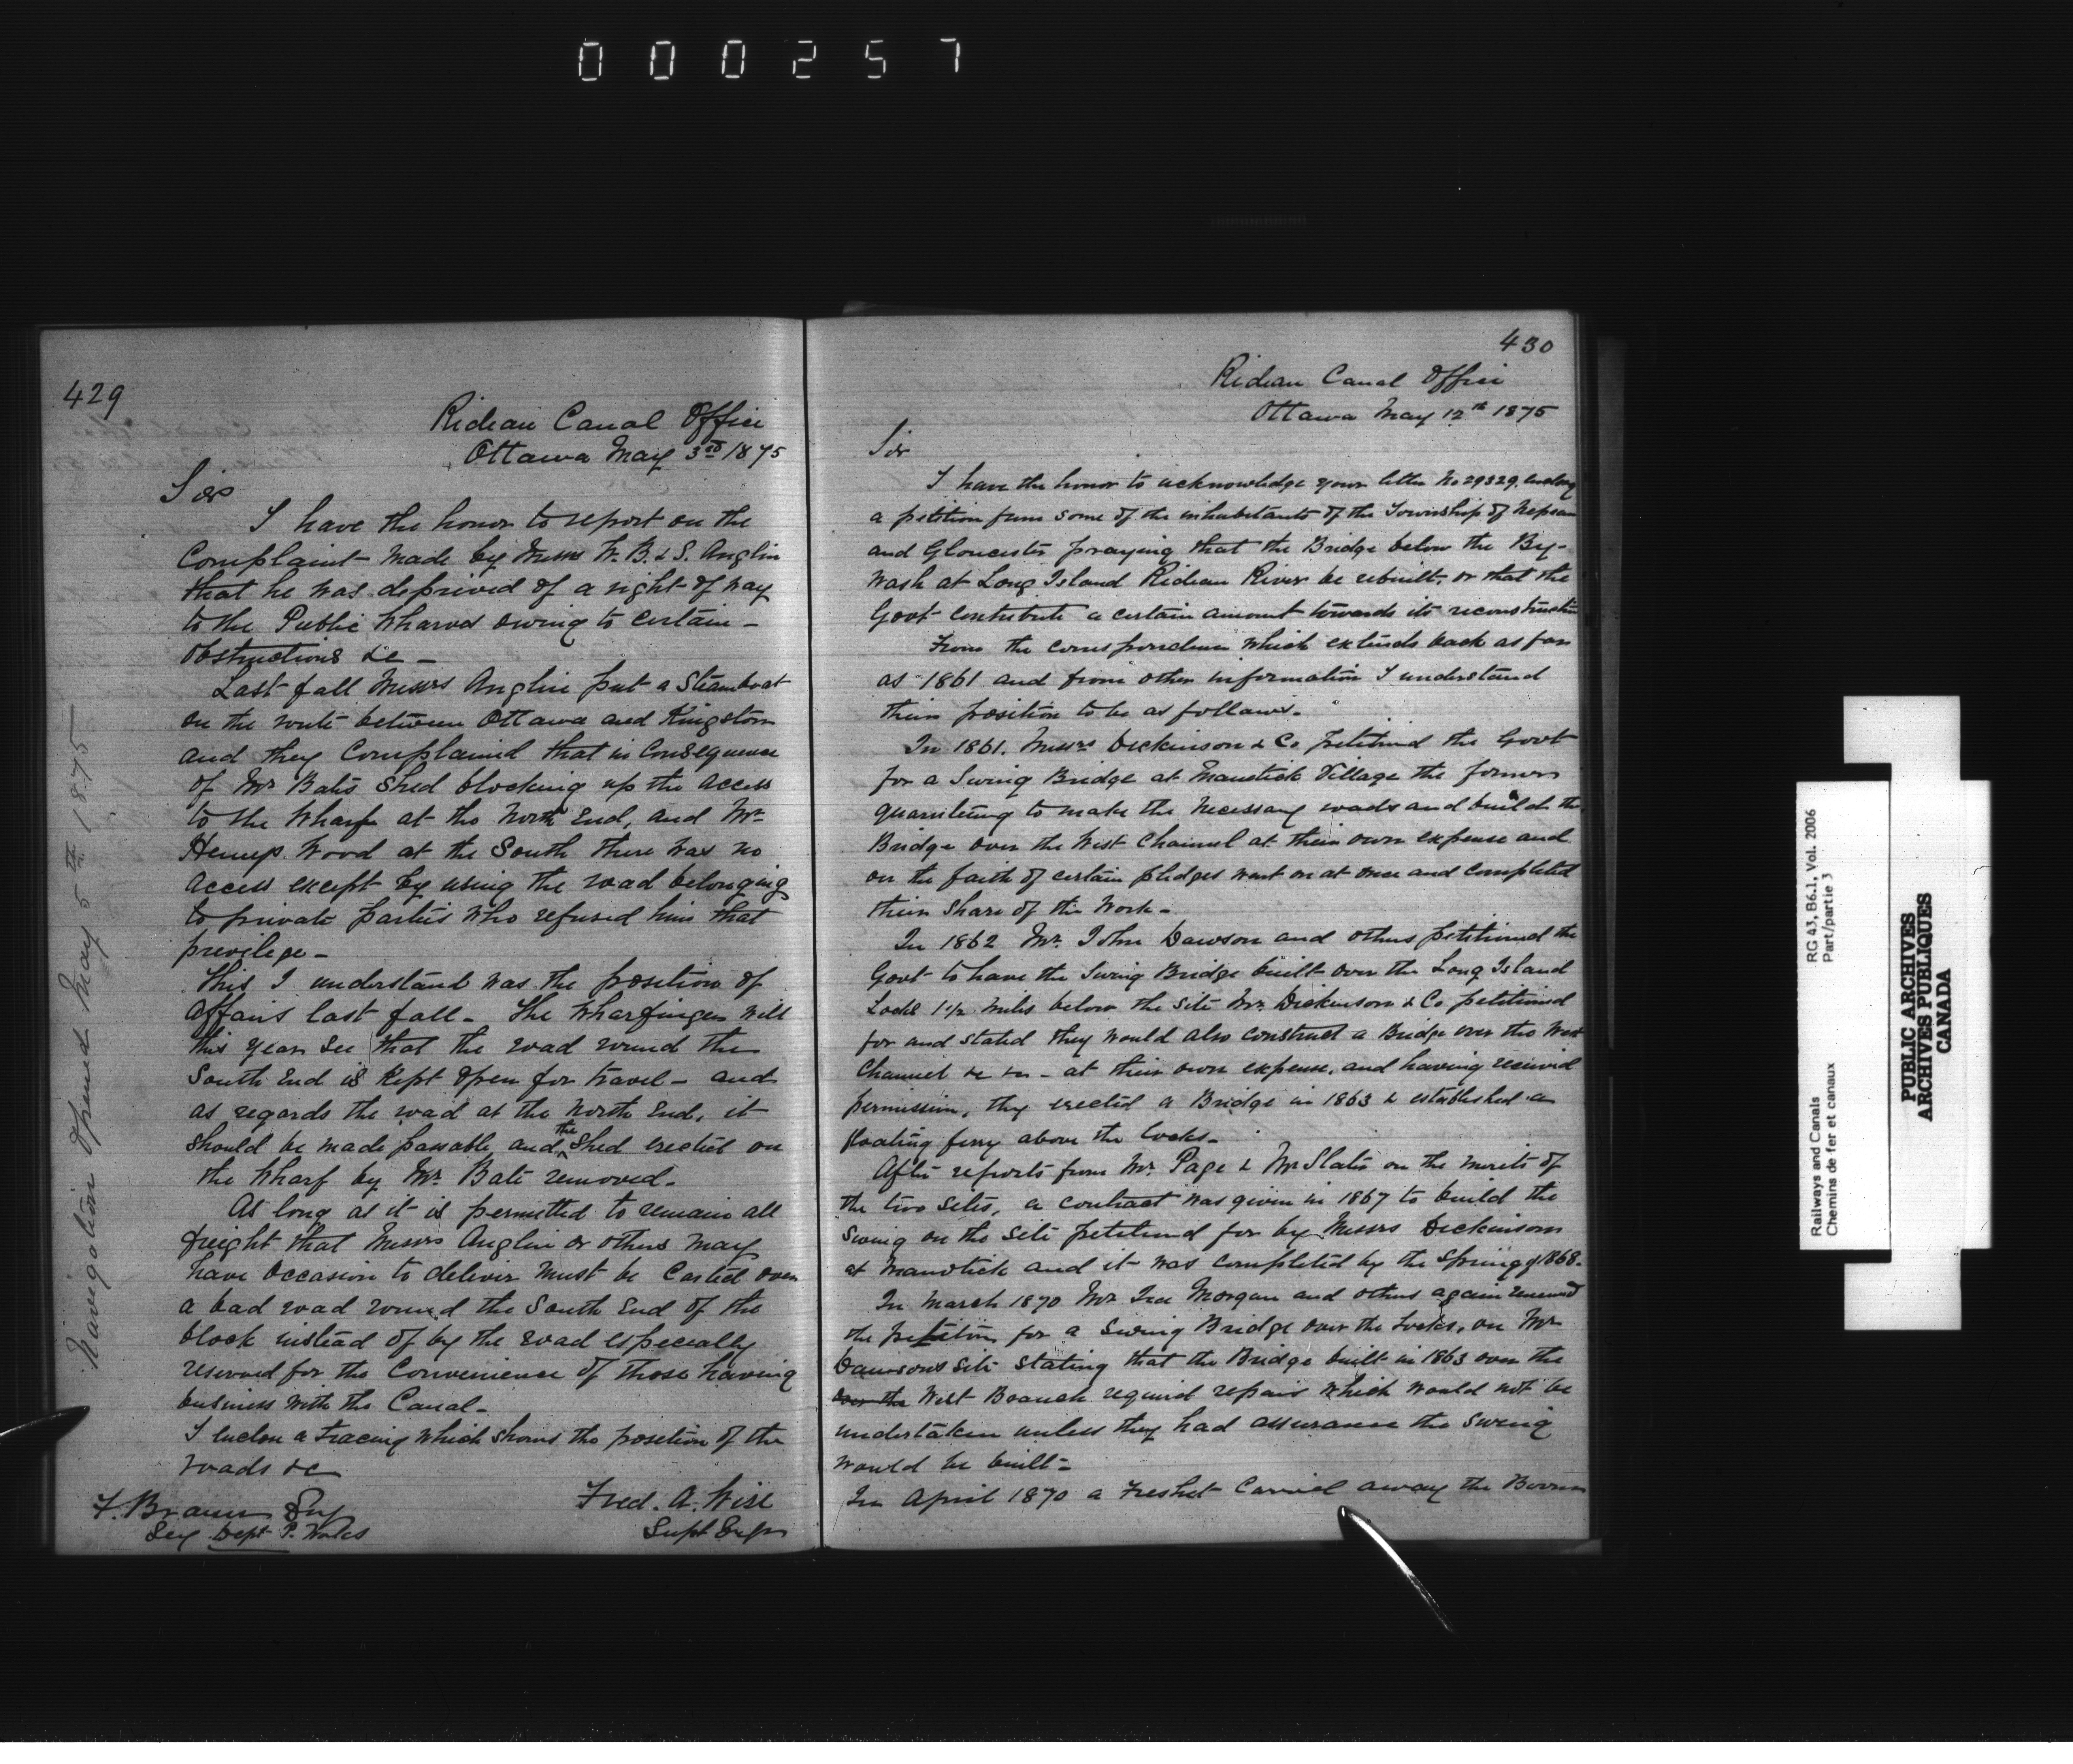 000257
429
Rideau Canal Office
Ottawa May 3rd 1875
Sir
I have the honor to report on the
Complaint made by Messrs W. B. & S. Anglin
that he was deprived of a right of way
to the Public Wharves owing to certain –
obstructions &c –
Last fall Messrs Anglin put a Steamboat
on the route between Ottawa and Kingston
and they Complained that in Consequence
of Mr Bates Shed blocking up the access
to the Wharf at the North End, and Mr
Heney Wood at the South there was no
access except by using the road belonging
to private parties who refused him that
privilege –
This I understand was the position of
affairs last fall – The Wharfinger will
this year see that the road round the
South End is Kept open for travel – and
as regards the road at the North End, it
should be made passable and the Shed erected on
the Wharf by Mr. Bate removed –
As long as it is permitted to remain all
freight that Messrs Anglin or others may
have occasion to deliver must be Carted over
a bad road round the South End of the
block instead of by the road especially
reserved for the Convenience of those having
business with the Canal –
I enclose a Tracing which shows the position of the
roads &c
F. Braun Esq
Secy Dept P. Works
Fred. A. Wise
Supt Engr
Navigation Opened May 5th 1875
430
Rideau Canal Office
Ottawa May 12th 1875
Sir
I have the honor to acknowledge your letter No 29329, enclosing
a petition from some of the inhabitants of the Township of Nepean
and Gloucester praying that the Bridge below the By-
wash at Long Island Rideau River be rebuilt, or that the
Govt contribute a certain amount towards its reconstruction
From the correspondence which extends back as far
as 1861 and from other information I understand
their position to be as follows –
In 1861. Messrs Dickinson & Co petitioned the Govt
for a Swing Bridge at Manotick Village the former
guaranteeing to make the necessary roads and build the
Bridge over the West Channel at their own expense and
on the faith of certain pledges went on at once and completed
their share of the Work –
In 1862 Mr. John Dawson and others petitioned the
Govt to have the Swing Bridge built over the Long Island
Locks 1½ miles below the site Mr. Dickinson & Co petitioned
for and stated they would also construct a Bridge over the West
Channel &c &c – at their own expense, and having received
permission, they erected a Bridge in 1863 & established a
floating ferry above the Locks –
After reports from Mr. Page & Mr Slater on the merits of
the two sites, a contract was given in 1867 to build the
Swing on the site petitioned for by Messrs Dickinson
at Manotick and it was completed by the Spring of 1868.
In March 1870 Mr Ira Morgan and others again renewed
the petition for a Swing Bridge over the Locks, on Mr
Dawsons site stating that the Bridge built in 1863 over the
over the West Branch required repairs which would not be
undertaken unless they had assurance the Swing
would be built –
In April 1870 a Freshet Carried away the Boom
RG 43, B6.1, Vol. 2006
Part/partie 3
Railways and Canals
Chemins de fer et canaux
PUBLIC ARCHIVES
ARCHIVES PUBLIQUES
CANADA